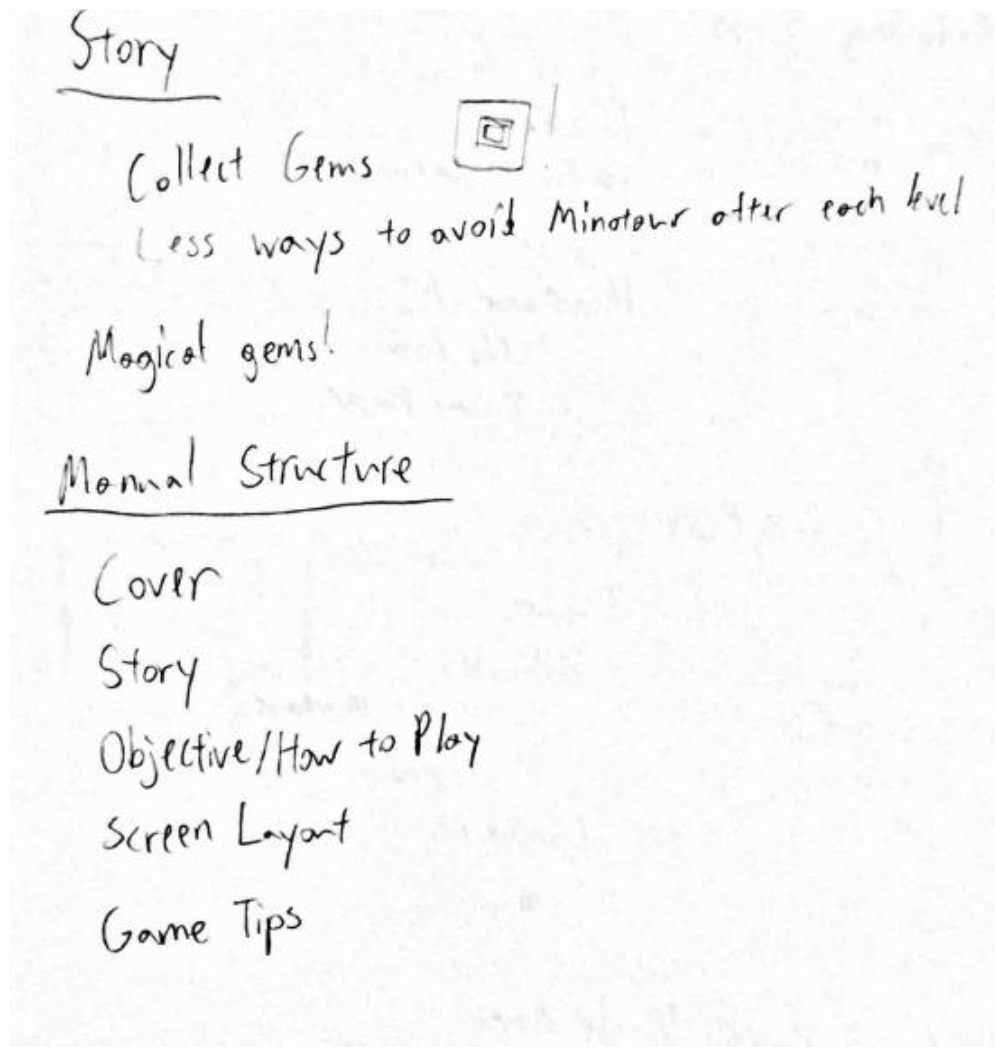 Story
Collect Gems
Less ways to avoid Minotaur after each level
Magical gems!
Manual Structure
Cover
Story
Objective/How to Play
Screen Layout
Game Tips